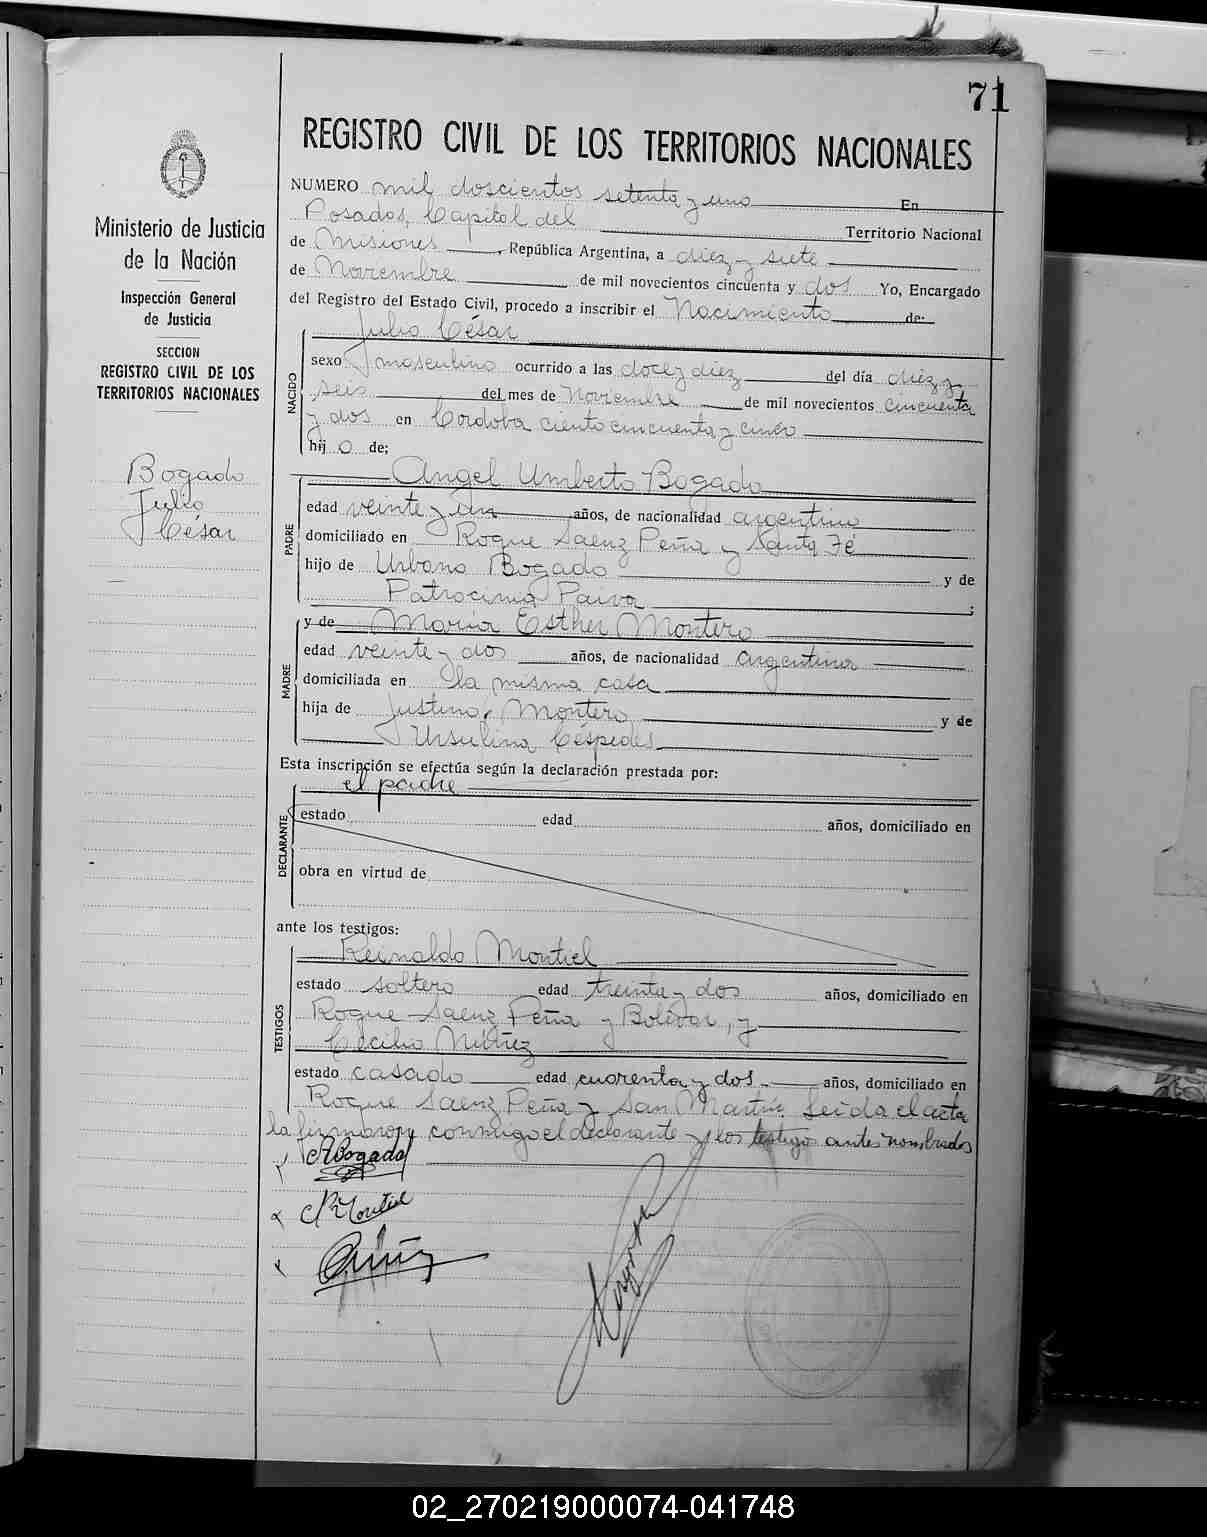 71
REGISTRO CIVIL DE LOS TERRITORIOS NACIONALES
Ministerio de Justicia
de la Nación
Inspección General
de Justicia
SECCION
REGISTRO CIVIL DE LOS
TERRITORIOS NACIONALES
Bogado
Julio
César
NUMERO mil doscientos setenta y uno En
Posadas, Capital del Territorio Nacional
de Misiones, República Argentina, a diez y siete
de Noviembre de mil novecientos cincuenta y dos Yo, Encargado
del Registro del Estado Civil, procedo a inscribir el Nacimiento de:
Julio César
NACIDO
sexo masculino ocurrido a las doce y diez del día diez y
seis del mes de Noviembre de mil novecientos cincuenta
y dos en Cordoba ciento cincuenta y cinco
hijo de;
Angel Umberto Bogado
PADRE
edad veinte y un años, de nacionalidad argentino
domiciliado en Roque Saenz Peña y Santa Fé
hijo de Urbano Bogado y de
Patrocinia Paiva;
y de Maria Esther Montero
MADRE
edad veinte y dos años, de nacionalidad argentina
domiciliada en la misma casa
hija de Justino Montero y de
Ursulina Céspedes
Esta inscripción se efectúa según la declaración prestada por:
el padre
DECLARANTE
estado edad años, domiciliado en
obra en virtud de
ante los testigos:
Reinaldo Montiel
TESTIGOS
estado soltero edad treinta y dos años, domiciliado en
Roque Saenz Peña y Bolívar, y
Cecilio Núñez
estado casado edad cuarenta y dos años, domiciliado en
Roque Saenz Peña y San Martín. Leida el acta
la firmaron conmigo el declarante y los testigos antes nombrados
ABogado
R Montiel
02_270219000074-041748